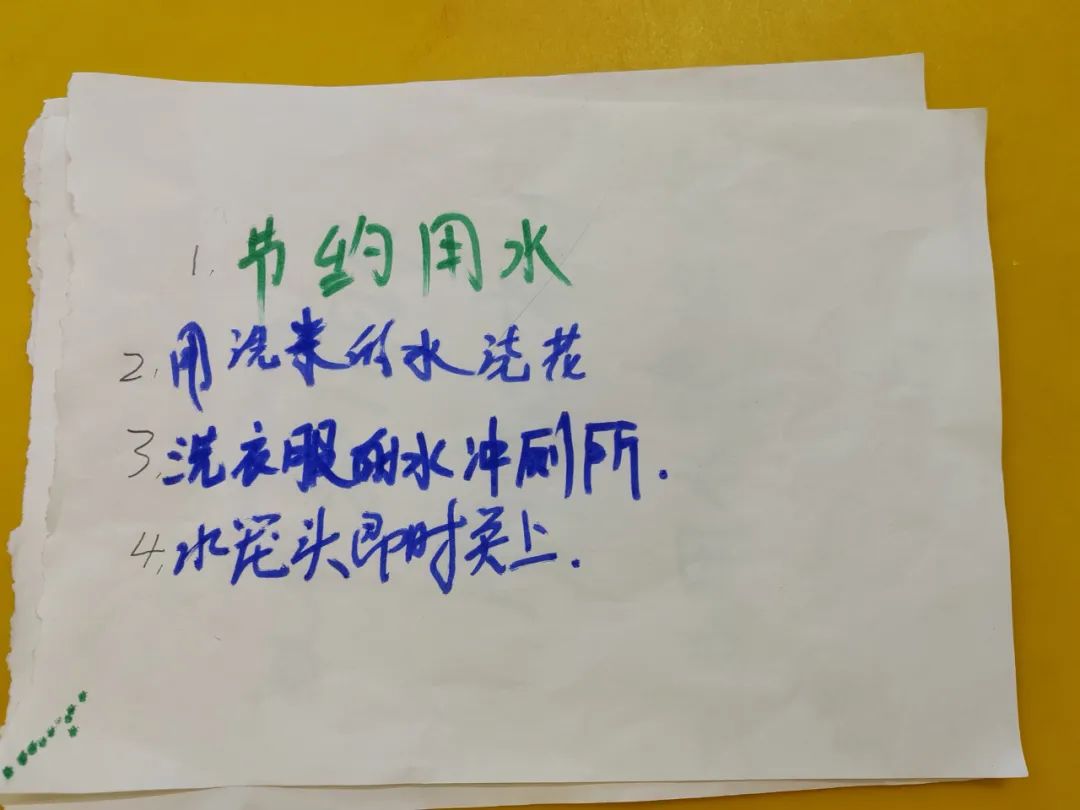 1. 节约用水
2. 用洗米的水浇花
3. 洗衣服的水冲厕所.
4. 水笼头即时关上.